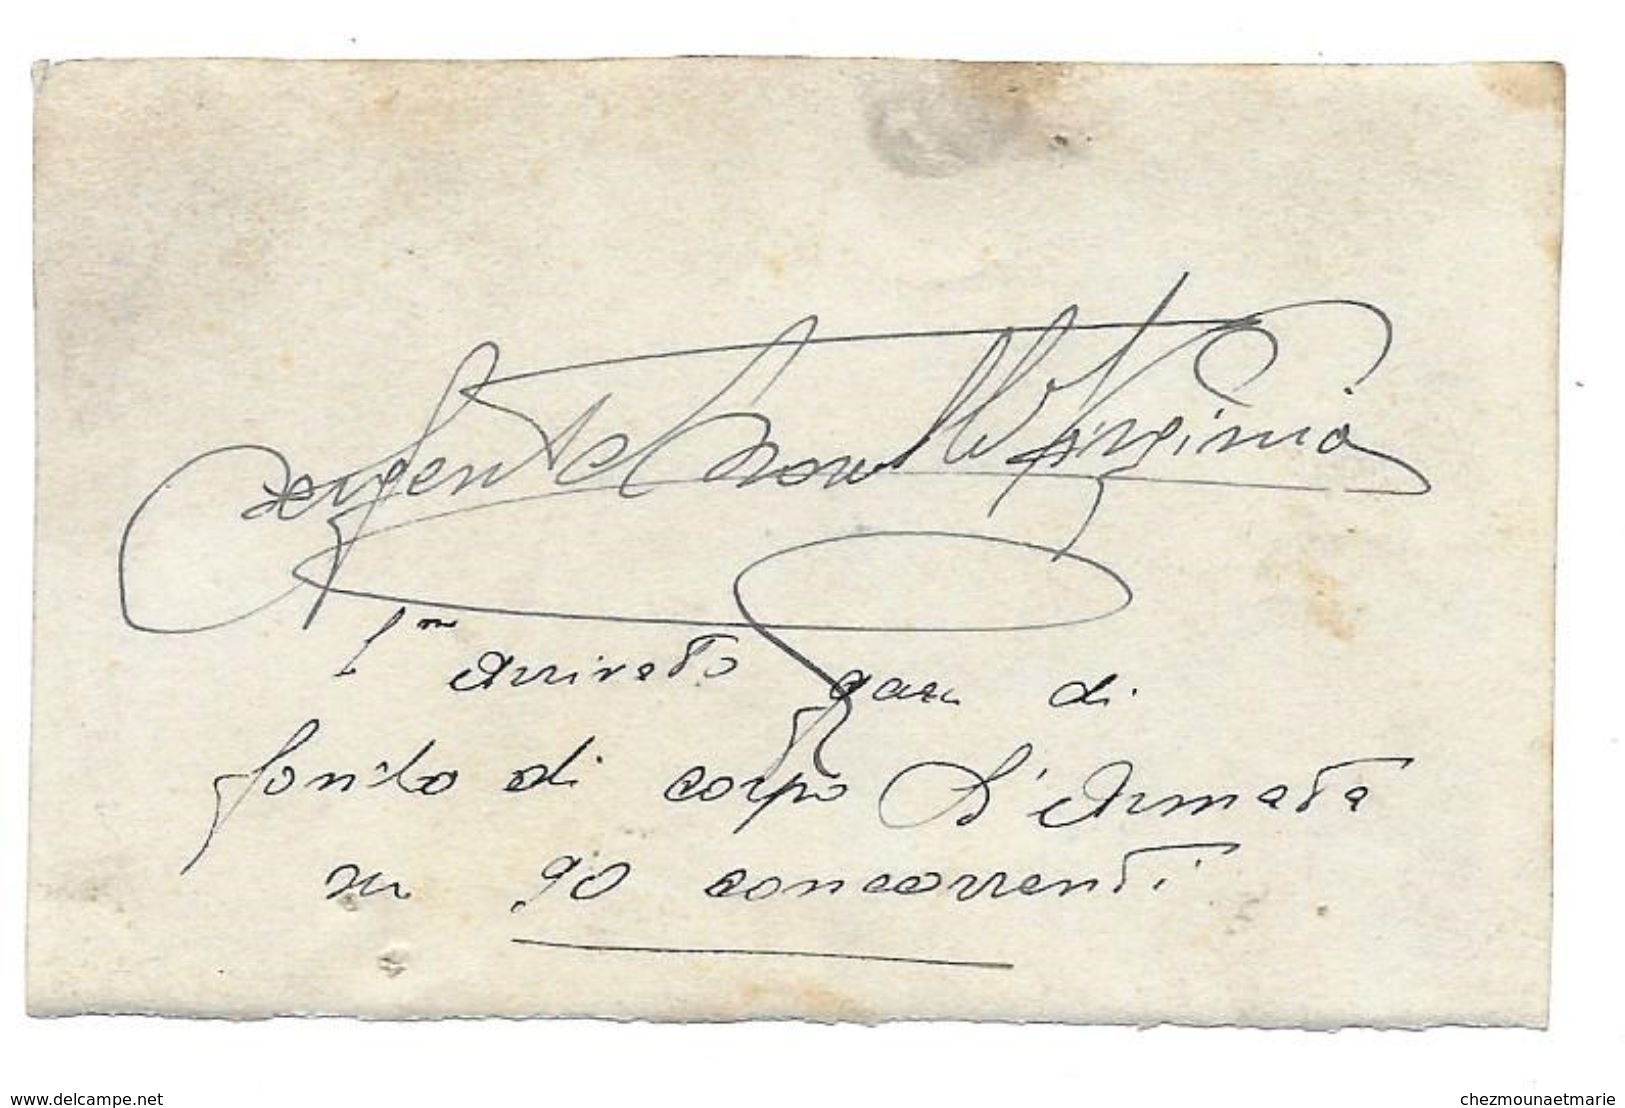 Sergente Virginio
1m Arrivato gara di
fondo di corpo D'Armata
su 90 concorrenti
www.delcampe.net
chezmounaetmarie